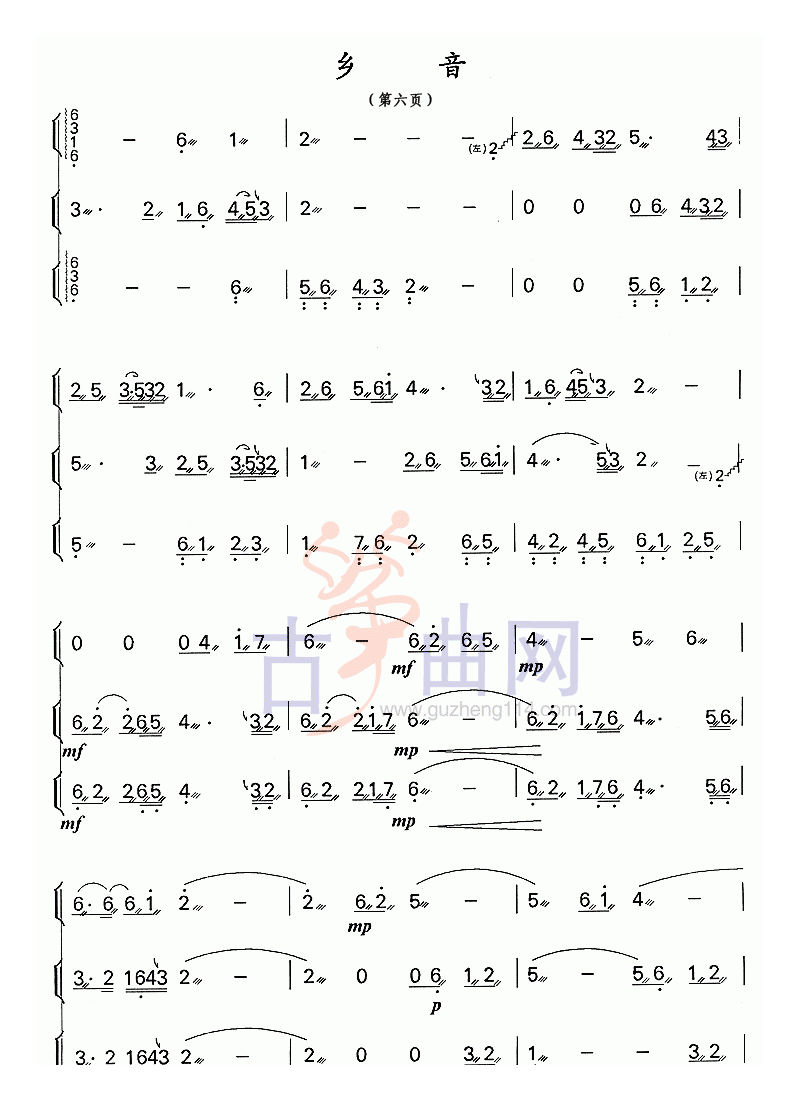 乡 音
（第六页）
6 3 1 6 – 6 1 | 2 – – – (左) 2 | 2 6 4 3 2 5 · 4 3 |
3 · 2 1 6 4 5 3 | 2 – – – | 0 0 0 6 4 3 2 |
6 3 6 – – 6 | 5 6 4 3 2 – | 0 0 5 6 1 2 |
2 5 3 · 5 3 2 1 · 6 | 2 6 5 6 1 4 · 3 2 | 1 6 4 5 3 2 – |
5 · 3 2 5 3 · 5 3 2 | 1 – 2 6 5 6 1 | 4 · 5 3 2 – (左) 2 |
5 – 6 1 2 3 | 1 7 6 2 6 5 | 4 2 4 5 6 1 2 5 |
0 0 0 4 1 7 | 6 – 6 2 6 5 | 4 – 5 6 |
mf mp
6 2 2 6 5 4 · 3 2 | 6 2 2 1 7 6 – | 6 2 1 7 6 4 · 5 6 |
mf mp
6 2 2 6 5 4 · 3 2 | 6 2 2 1 7 6 – | 6 2 1 7 6 4 · 5 6 |
mf mp
6 · 6 6 1 2 – | 2 6 2 5 – | 5 6 1 4 – |
mp
3 · 2 1 6 4 3 2 – | 2 0 0 6 1 2 | 5 – 5 6 1 2 |
p
3 · 2 1 6 4 3 2 – | 2 0 0 3 2 | 1 – – 3 2 |
古筝曲网
www.guzheng114.com